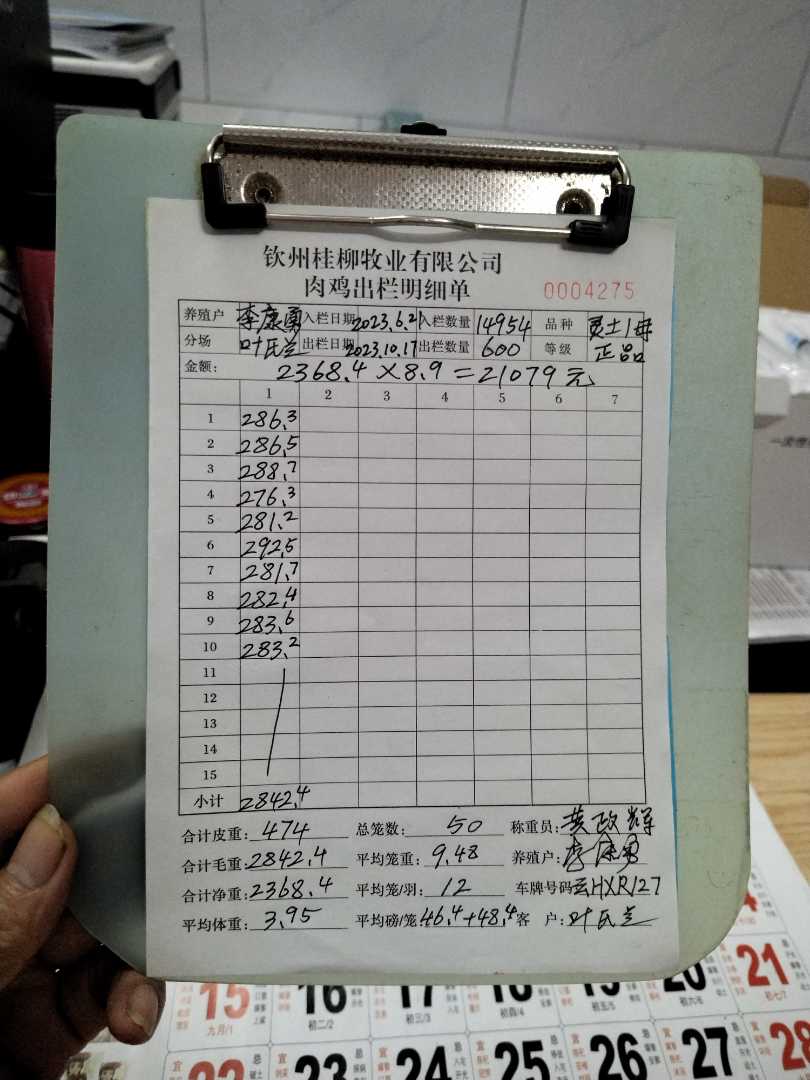 钦州桂柳牧业有限公司
肉鸡出栏明细单 0004275
养殖户 李康勇 入栏日期 2023.6.21 入栏数量 14954 品种 灵土1母
分场 叶氏兰 出栏日期 2023.10.17 出栏数量 600 等级 正品
金额: 2368.4×8.9=21079元
1 2 3 4 5 6 7
1 286.3
2 286.5
3 288.7
4 276.3
5 281.2
6 292.5
7 281.7
8 282.4
9 283.6
10 283.2
11
12
13
14
15
小计 2842.4
合计皮重: 474 总笼数: 50 称重员: 黄政辉
合计毛重: 2842.4 平均笼重: 9.48 养殖户: 李康勇
合计净重: 2368.4 平均笼/羽: 12 车牌号码 云HXR127
平均体重: 3.95 平均磅/笼 46.4+48.4 客 户: 叶氏兰
15 16 17 18 19 20 21
九月/1 初二/2 初三/3 初四/4 初五/5 初六/6 初七/7
22 23 24 25 26 27 28